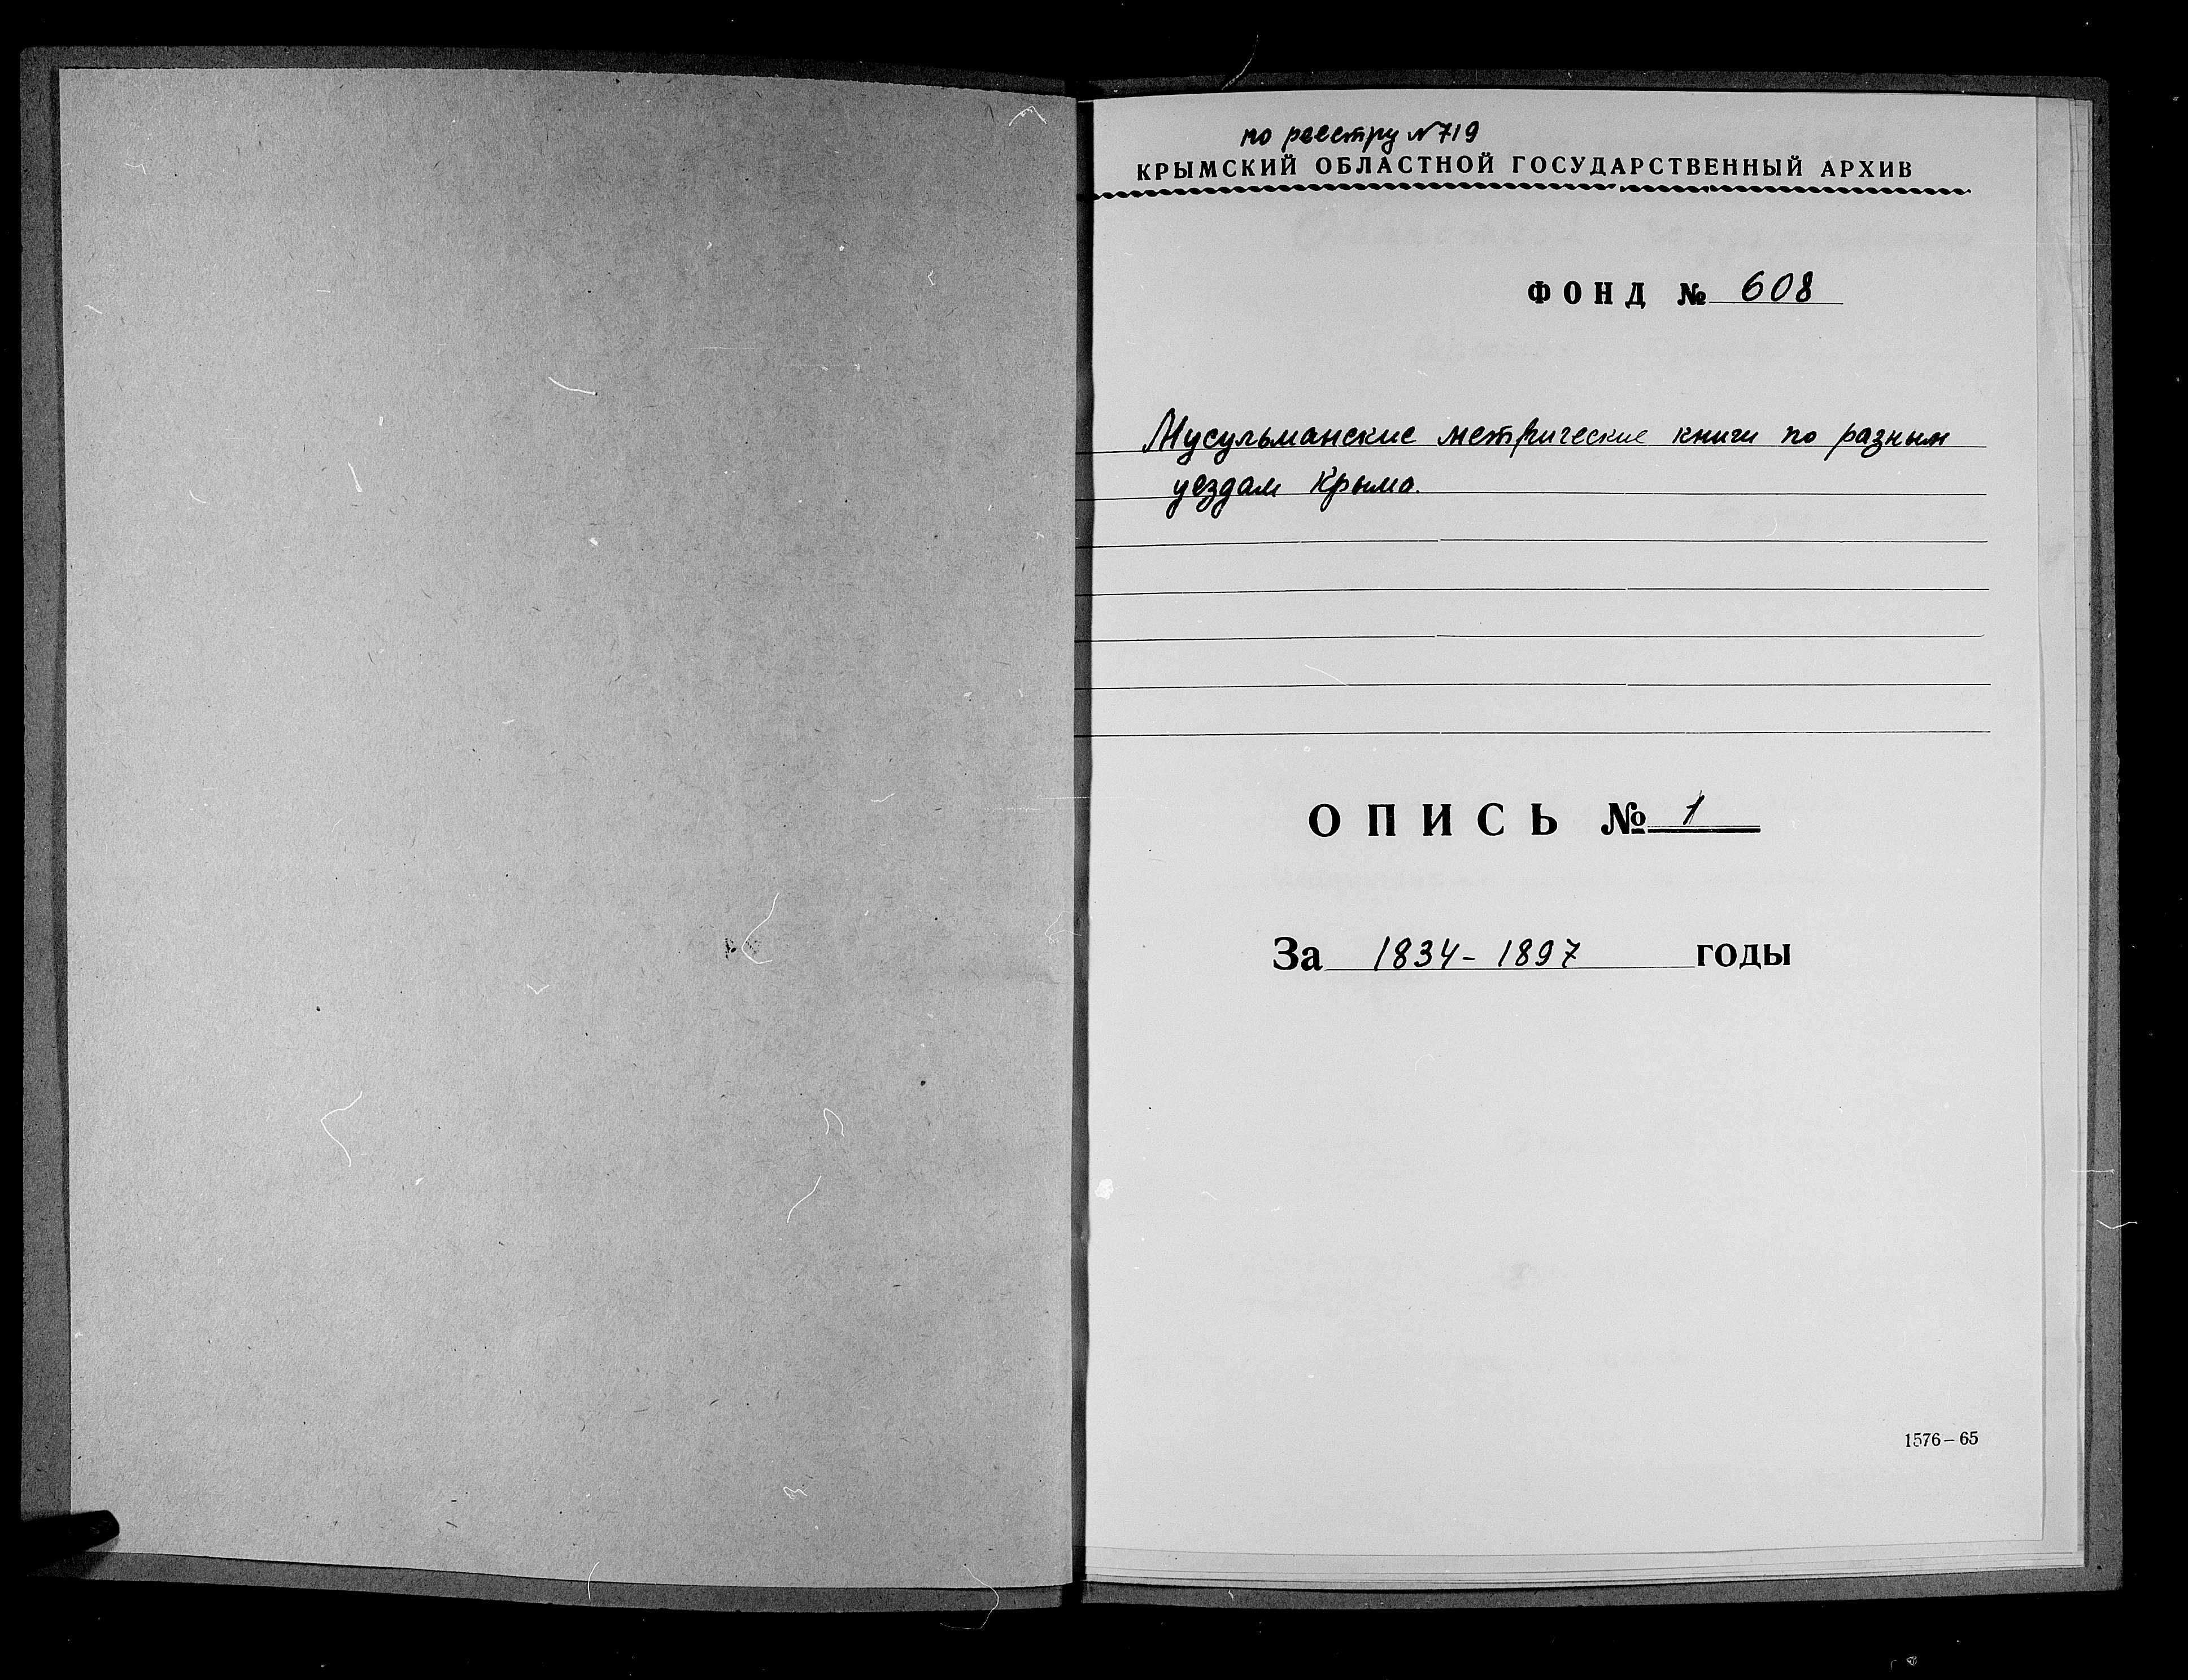 по реестру №719
КРЫМСКИЙ ОБЛАСТНОЙ ГОСУДАРСТВЕННЫЙ АРХИВ
ФОНД № 608
Мусульманские метрические книги по разным
уездам Крыма.
ОПИСЬ № 1
За 1834-1897 годы
1576-65